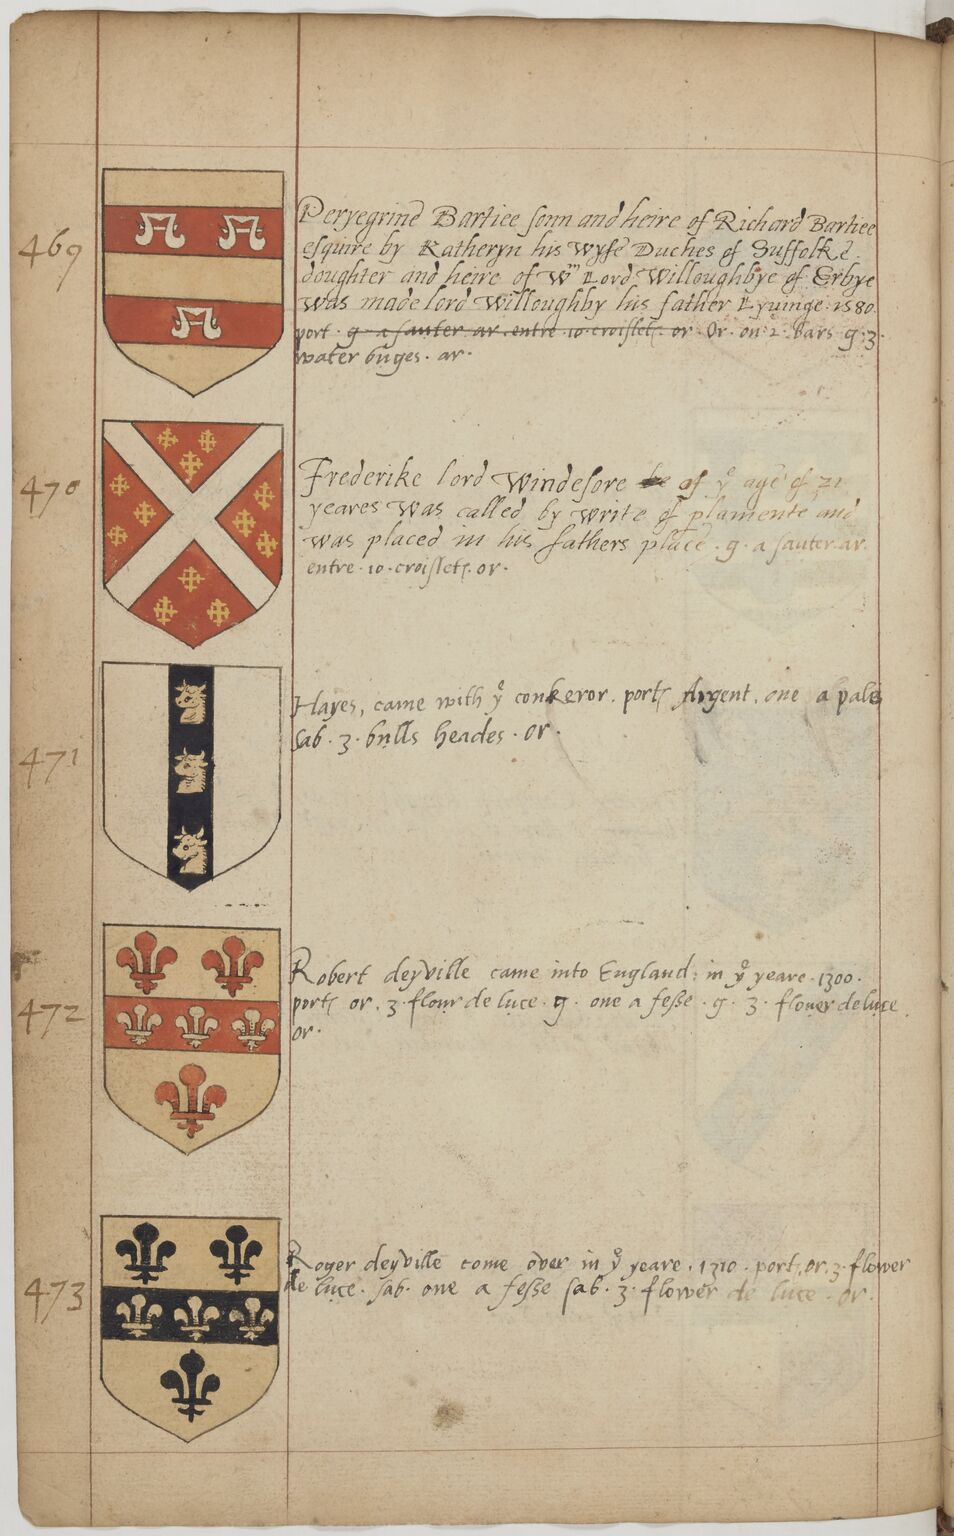 469
Peryegrine Bartiee sonn and heire of Richard Bartiee
esquire by Katheryn his wyfe Duches of Suffolke
doughter and heire of Wm Lord Willoughbye of Erbye
was made lord Willoughby his father Lyuinge 1580
port. g. a sauter ar. entre 10 croislets or Or. on 2. bars g. 3.
water buges. ar.
470
Frederike lord Windesore of ye age of 21
yeares was called by write of plamente and
was placed in his fathers place. g. a sauter ar.
entre. 10. croislets. or.
471
Hayes, came with ye conkeror. ports Argent. one a pale
sab. 3. bulls heades. or.
472
Robert deyville came into England: in ye yeare. 1300.
ports or. 3. flour de luce. g. one a fesse. g. 3. flouer de luce.
or.
473
Roger deyville come over in ye yeare. 1310. port. or. 3. flower
de luce. sab. one a fesse sab. 3. flower de luce. or.